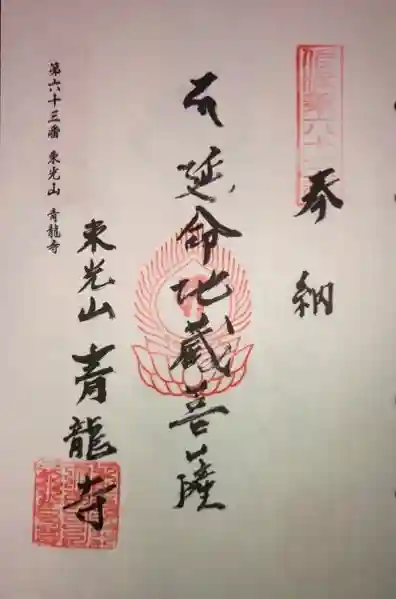 奉納
延命地蔵菩薩
東光山青龍寺
第六十三番 東光山 青龍寺